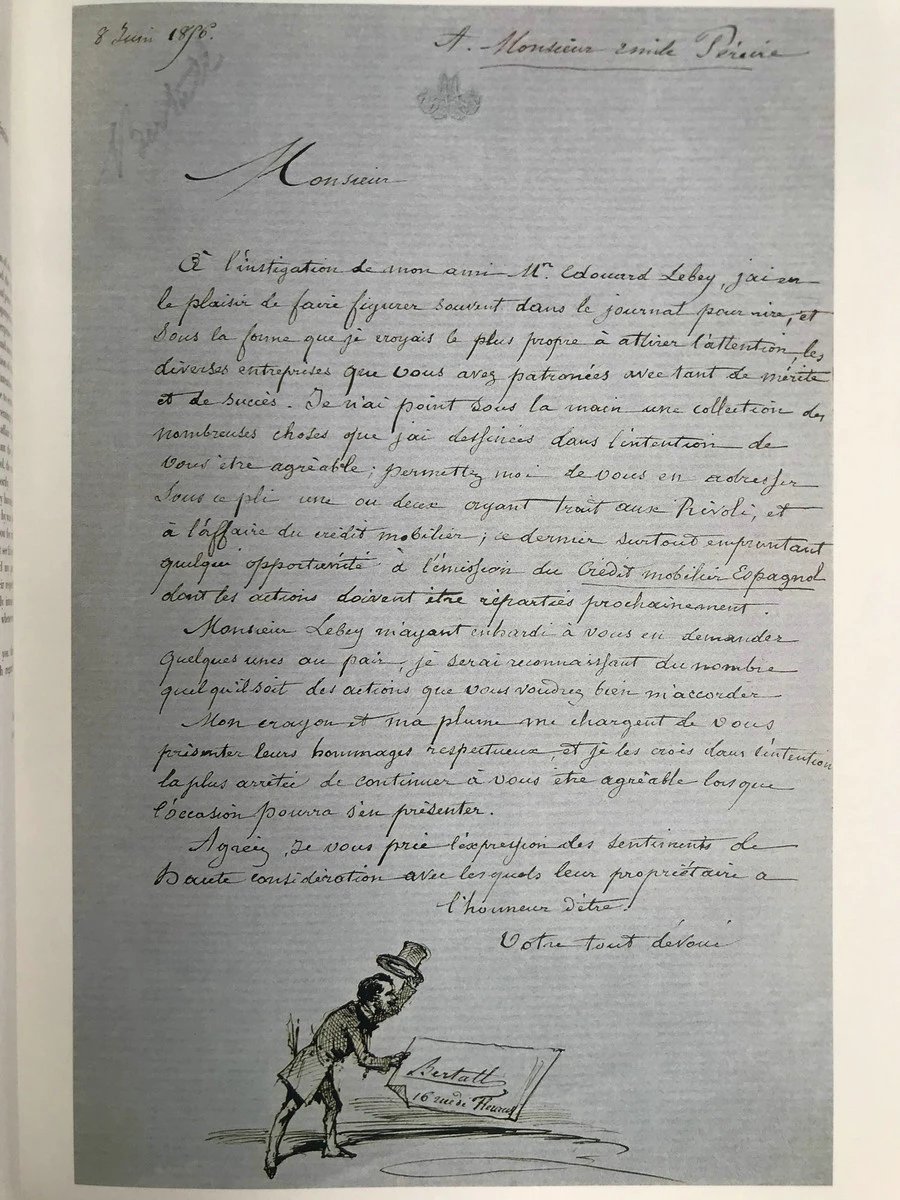 8 Juin 1856.
A. Monsieur Emile Péreire
Bertall
Monsieur
À l'instigation de mon ami Mr. Edouard Lebey, j'ai eu
le plaisir de faire figurer souvent dans le journal pour rire, et
Sous la forme que je croyais le plus propre à attirer l'attention, les
diverses entreprises que vous avez patronées avec tant de mérite
et de succès. Je n'ai point sous la main une collection des
nombreuses choses que j'ai dessinées dans l'intention de
vous être agréable ; permettez moi de vous en adresser
Sous ce pli une ou deux ayant trait aux Rivoli, et
à l'affaire du crédit mobilier ; ce dernier surtout empruntant
quelqu'opportunité à l'émission du Crédit mobilier Espagnol
dont les actions doivent être réparties prochainement.
Monsieur Lebey m'ayant enhardi à vous en demander
quelques unes au pair, je serai reconnaissant du nombre
quelqu'il soit des actions que vous voudrez bien m'accorder
Mon crayon et ma plume me chargent de vous
présenter leurs hommages respectueux, et je les crois dans l'intention
la plus arrêtée de continuer à vous être agréable lorsque
l'occasion pourra s'en présenter.
Agréez, Je vous prie l'expression des sentiments de
Haute considération avec lesquels leur propriétaire a
l'honneur d'être.
Votre tout dévoué
Bertall
16 rue de Fleurus